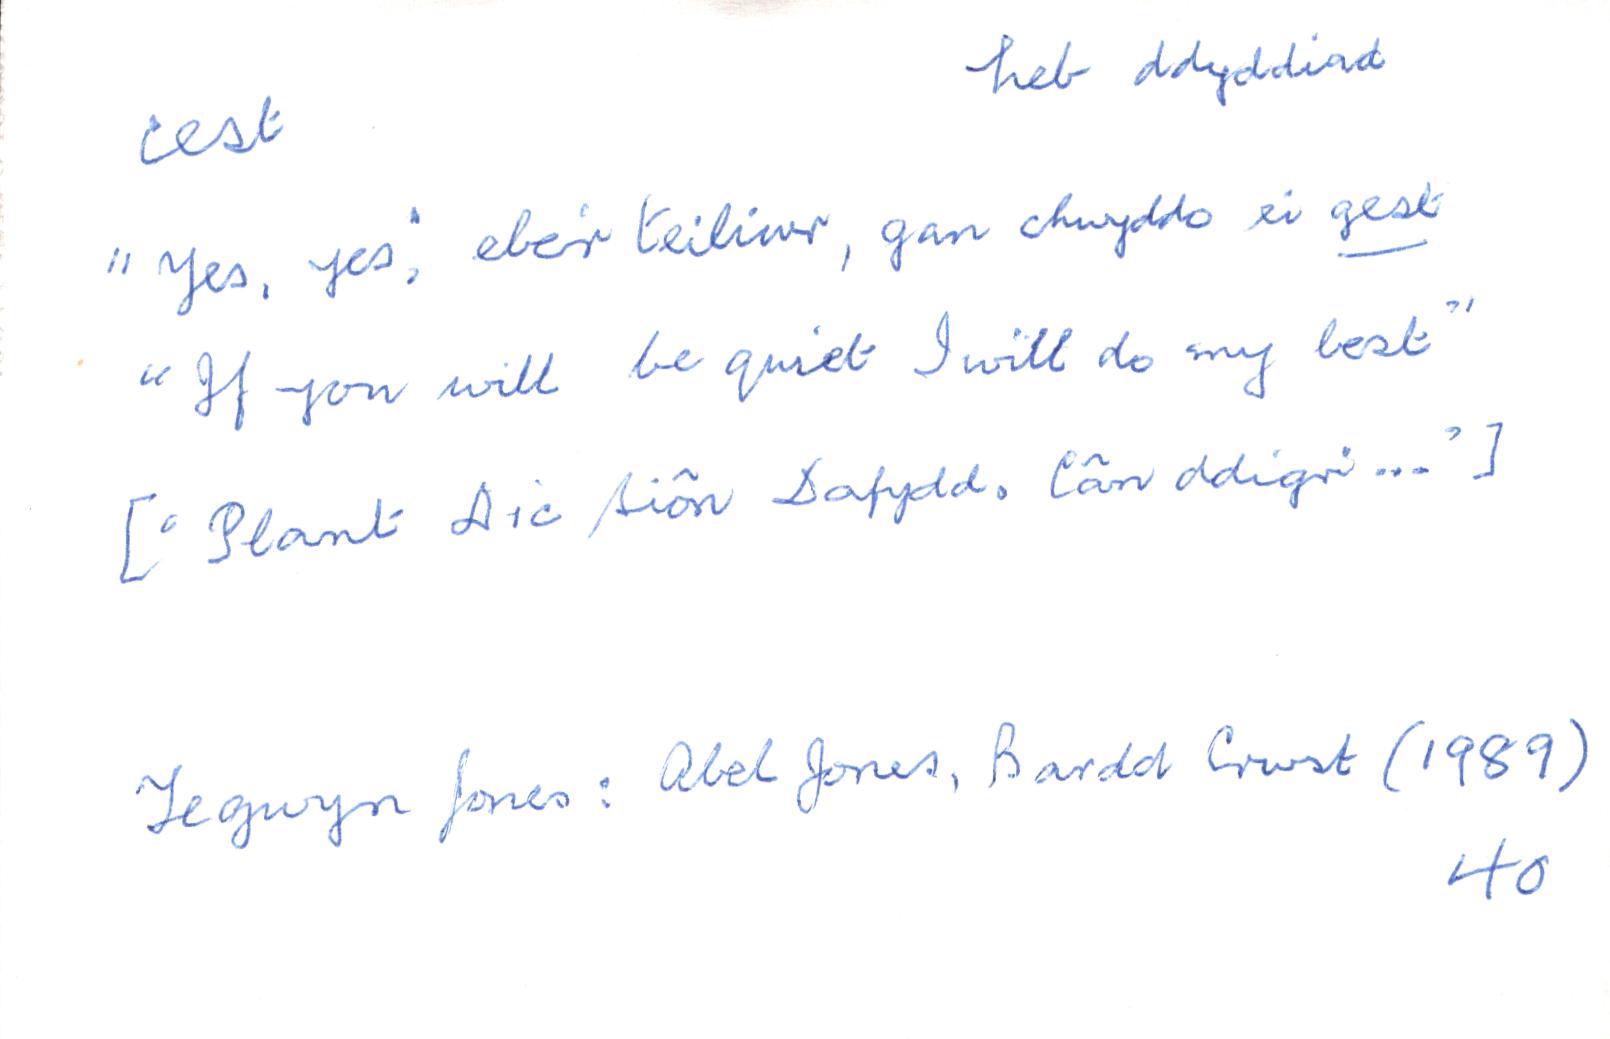 heb ddyddiad
cest
"Yes, yes", ebe'r teiliwr, gan chwyddo ei gest
"If you will be quiet I will do my best"
['Plant Dic Siôn Dafydd. Cân ddigri ...']
Tegwyn Jones: Abel Jones, Bardd Crwst (1989)
40